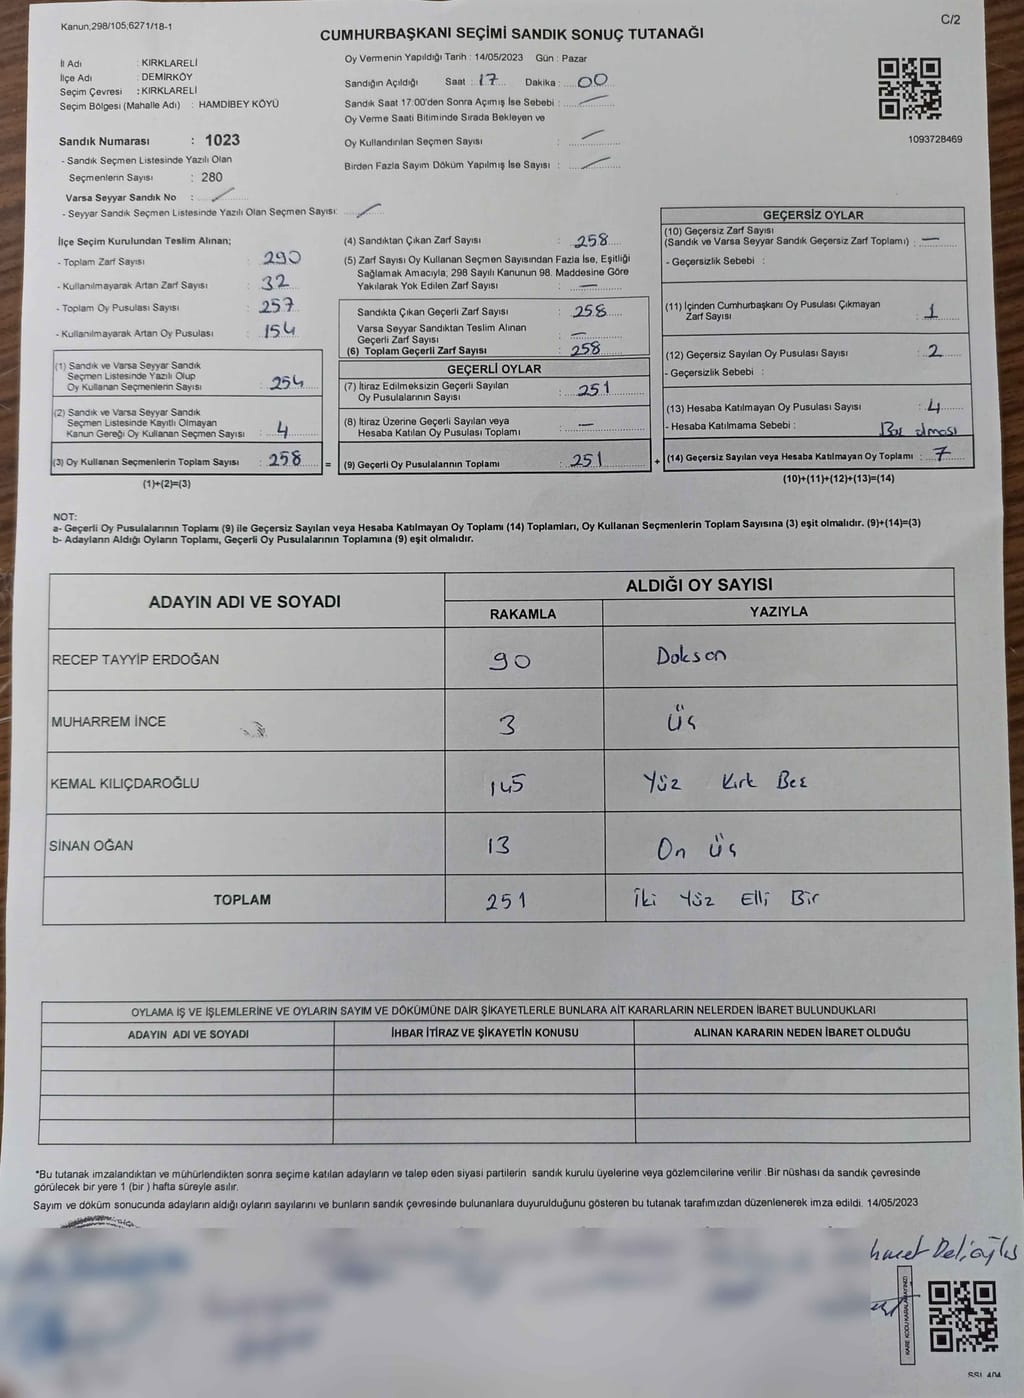 Kanun;298/105,6271/18-1
C/2
CUMHURBAŞKANI SEÇİMİ SANDIK SONUÇ TUTANAĞI
İl Adı : KIRKLARELİ
İlçe Adı : DEMİRKÖY
Seçim Çevresi : KIRKLARELİ
Seçim Bölgesi (Mahalle Adı) : HAMDİBEY KÖYÜ
Sandık Numarası : 1023
- Sandık Seçmen Listesinde Yazılı Olan
Seçmenlerin Sayısı : 280
Varsa Seyyar Sandık No :
- Seyyar Sandık Seçmen Listesinde Yazılı Olan Seçmen Sayısı:
Oy Vermenin Yapıldığı Tarih : 14/05/2023 Gün : Pazar
Sandığın Açıldığı Saat : 17 Dakika : 00
Sandık Saat 17:00'den Sonra Açımış İse Sebebi :
Oy Verme Saati Bitiminde Sırada Bekleyen ve
Oy Kullandırılan Seçmen Sayısı :
Birden Fazla Sayım Döküm Yapılmış İse Sayısı :
1093728469
İlçe Seçim Kurulundan Teslim Alınan;
- Toplam Zarf Sayısı : 290
- Kullanılmayarak Artan Zarf Sayısı : 32
- Toplam Oy Pusulası Sayısı : 257
- Kullanılmayarak Artan Oy Pusulası : 154
(1) Sandık ve Varsa Seyyar Sandık
Seçmen Listesinde Yazılı Olup
Oy Kullanan Seçmenlerin Sayısı : 254
(2) Sandık ve Varsa Seyyar Sandık
Seçmen Listesinde Kayıtlı Olmayan
Kanun Gereği Oy Kullanan Seçmen Sayısı : 4
(3) Oy Kullanan Seçmenlerin Toplam Sayısı : 258 =
(1)+(2)=(3)
(4) Sandıktan Çıkan Zarf Sayısı : 258
(5) Zarf Sayısı Oy Kullanan Seçmen Sayısından Fazla İse, Eşitliği
Sağlamak Amacıyla; 298 Sayılı Kanunun 98. Maddesine Göre
Yakılarak Yok Edilen Zarf Sayısı : —
Sandıkta Çıkan Geçerli Zarf Sayısı : 258
Varsa Seyyar Sandıktan Teslim Alınan
Geçerli Zarf Sayısı : —
(6) Toplam Geçerli Zarf Sayısı : 258
GEÇERLİ OYLAR
(7) İtiraz Edilmeksizin Geçerli Sayılan
Oy Pusulalarının Sayısı : 251
(8) İtiraz Üzerine Geçerli Sayılan veya
Hesaba Katılan Oy Pusulası Toplamı : —
(9) Geçerli Oy Pusulalarının Toplamı : 251 +
GEÇERSİZ OYLAR
(10) Geçersiz Zarf Sayısı
(Sandık ve Varsa Seyyar Sandık Geçersiz Zarf Toplamı) : —
- Geçersizlik Sebebi :
(11) İçinden Cumhurbaşkanı Oy Pusulası Çıkmayan
Zarf Sayısı : 1
(12) Geçersiz Sayılan Oy Pusulası Sayısı : 2
- Geçersizlik Sebebi :
(13) Hesaba Katılmayan Oy Pusulası Sayısı : 4
- Hesaba Katılmama Sebebi : Boş olması
(14) Geçersiz Sayılan veya Hesaba Katılmayan Oy Toplamı : 7
(10)+(11)+(12)+(13)=(14)
NOT:
a- Geçerli Oy Pusulalarının Toplamı (9) ile Geçersiz Sayılan veya Hesaba Katılmayan Oy Toplamı (14) Toplamları, Oy Kullanan Seçmenlerin Toplam Sayısına (3) eşit olmalıdır. (9)+(14)=(3)
b- Adayların Aldığı Oyların Toplamı, Geçerli Oy Pusulalarının Toplamına (9) eşit olmalıdır.
ADAYIN ADI VE SOYADI
ALDIĞI OY SAYISI
RAKAMLA YAZIYLA
RECEP TAYYİP ERDOĞAN 90 Doksan
MUHARREM İNCE 3 Üç
KEMAL KILIÇDAROĞLU 145 Yüz Kırk Beş
SİNAN OĞAN 13 On Üç
TOPLAM 251 İki Yüz Elli Bir
OYLAMA İŞ VE İŞLEMLERİNE VE OYLARIN SAYIM VE DÖKÜMÜNE DAİR ŞİKAYETLERLE BUNLARA AİT KARARLARIN NELERDEN İBARET BULUNDUKLARI
ADAYIN ADI VE SOYADI İHBAR İTİRAZ VE ŞİKAYETİN KONUSU ALINAN KARARIN NEDEN İBARET OLDUĞU
*Bu tutanak imzalandıktan ve mühürlendikten sonra seçime katılan adayların ve talep eden siyasi partilerin sandık kurulu üyelerine veya gözlemcilerine verilir .Bir nüshası da sandık çevresinde
görülecek bir yere 1 (bir ) hafta süreyle asılır.
Sayım ve döküm sonucunda adayların aldığı oyların sayılarını ve bunların sandık çevresinde bulunanlara duyurulduğunu gösteren bu tutanak tarafımızdan düzenlenerek imza edildi. 14/05/2023
KARE KODU KARALAMAYINIZ!